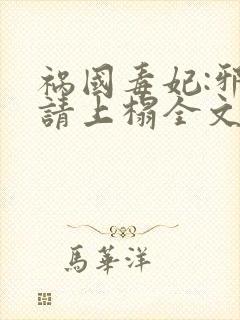 祸國毒妃:邪
請上榻全文
馬華洋